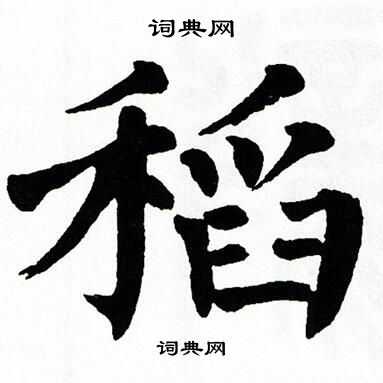 词典网
稻
词典网